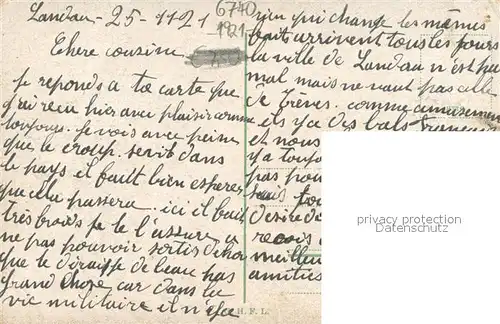 Landau - 25-1121
6740
1921
Chere cousine
Je reponds a ta carte que
j'ai recu hier avec plaisir comme
toujours. je vois avec peine
que le croup. sevit dans
le pays il fault bien esperer
que ella passera. ici il fait
tres froids je te l'assure, a
ne pas pouvoir sortis dehor
que te dirais je de beau pas
grand chose car dans la
vie militaire il n'ya
rien qui change les mêmes
faits arrivent tous les jours
la ville de Landau n'est pas
mal mais ne vaut pas celle
de Trèves. comme amusement
ils ya des bals
et nous
ya toujo
pas pou
desire de
recois
meilleu
amitiés
H. F. L.
privacy protection